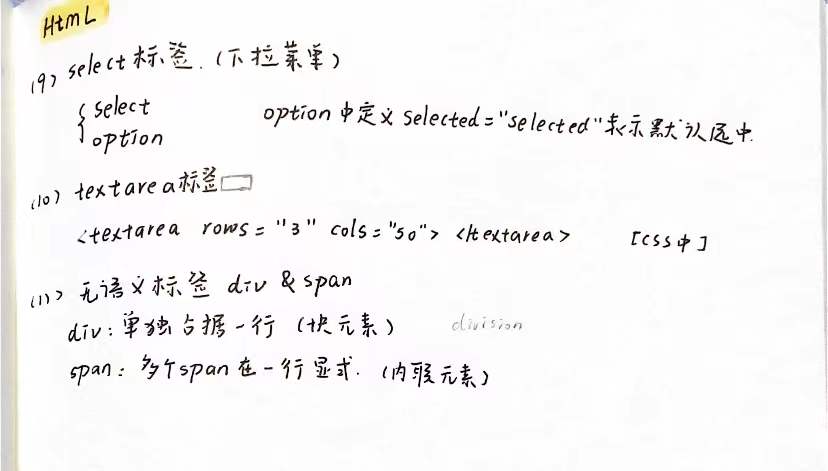 HtmL
(9) select标签.(下拉菜单)
{ select
option
option中定义selected="selected"表示默认选中.
(10) textarea标签
<textarea rows="3" cols="50"> </textarea> [css中]
(11) 无语义标签 div & span
div:单独占据一行 (块元素) division
span: 多个span在一行显式. (内联元素)